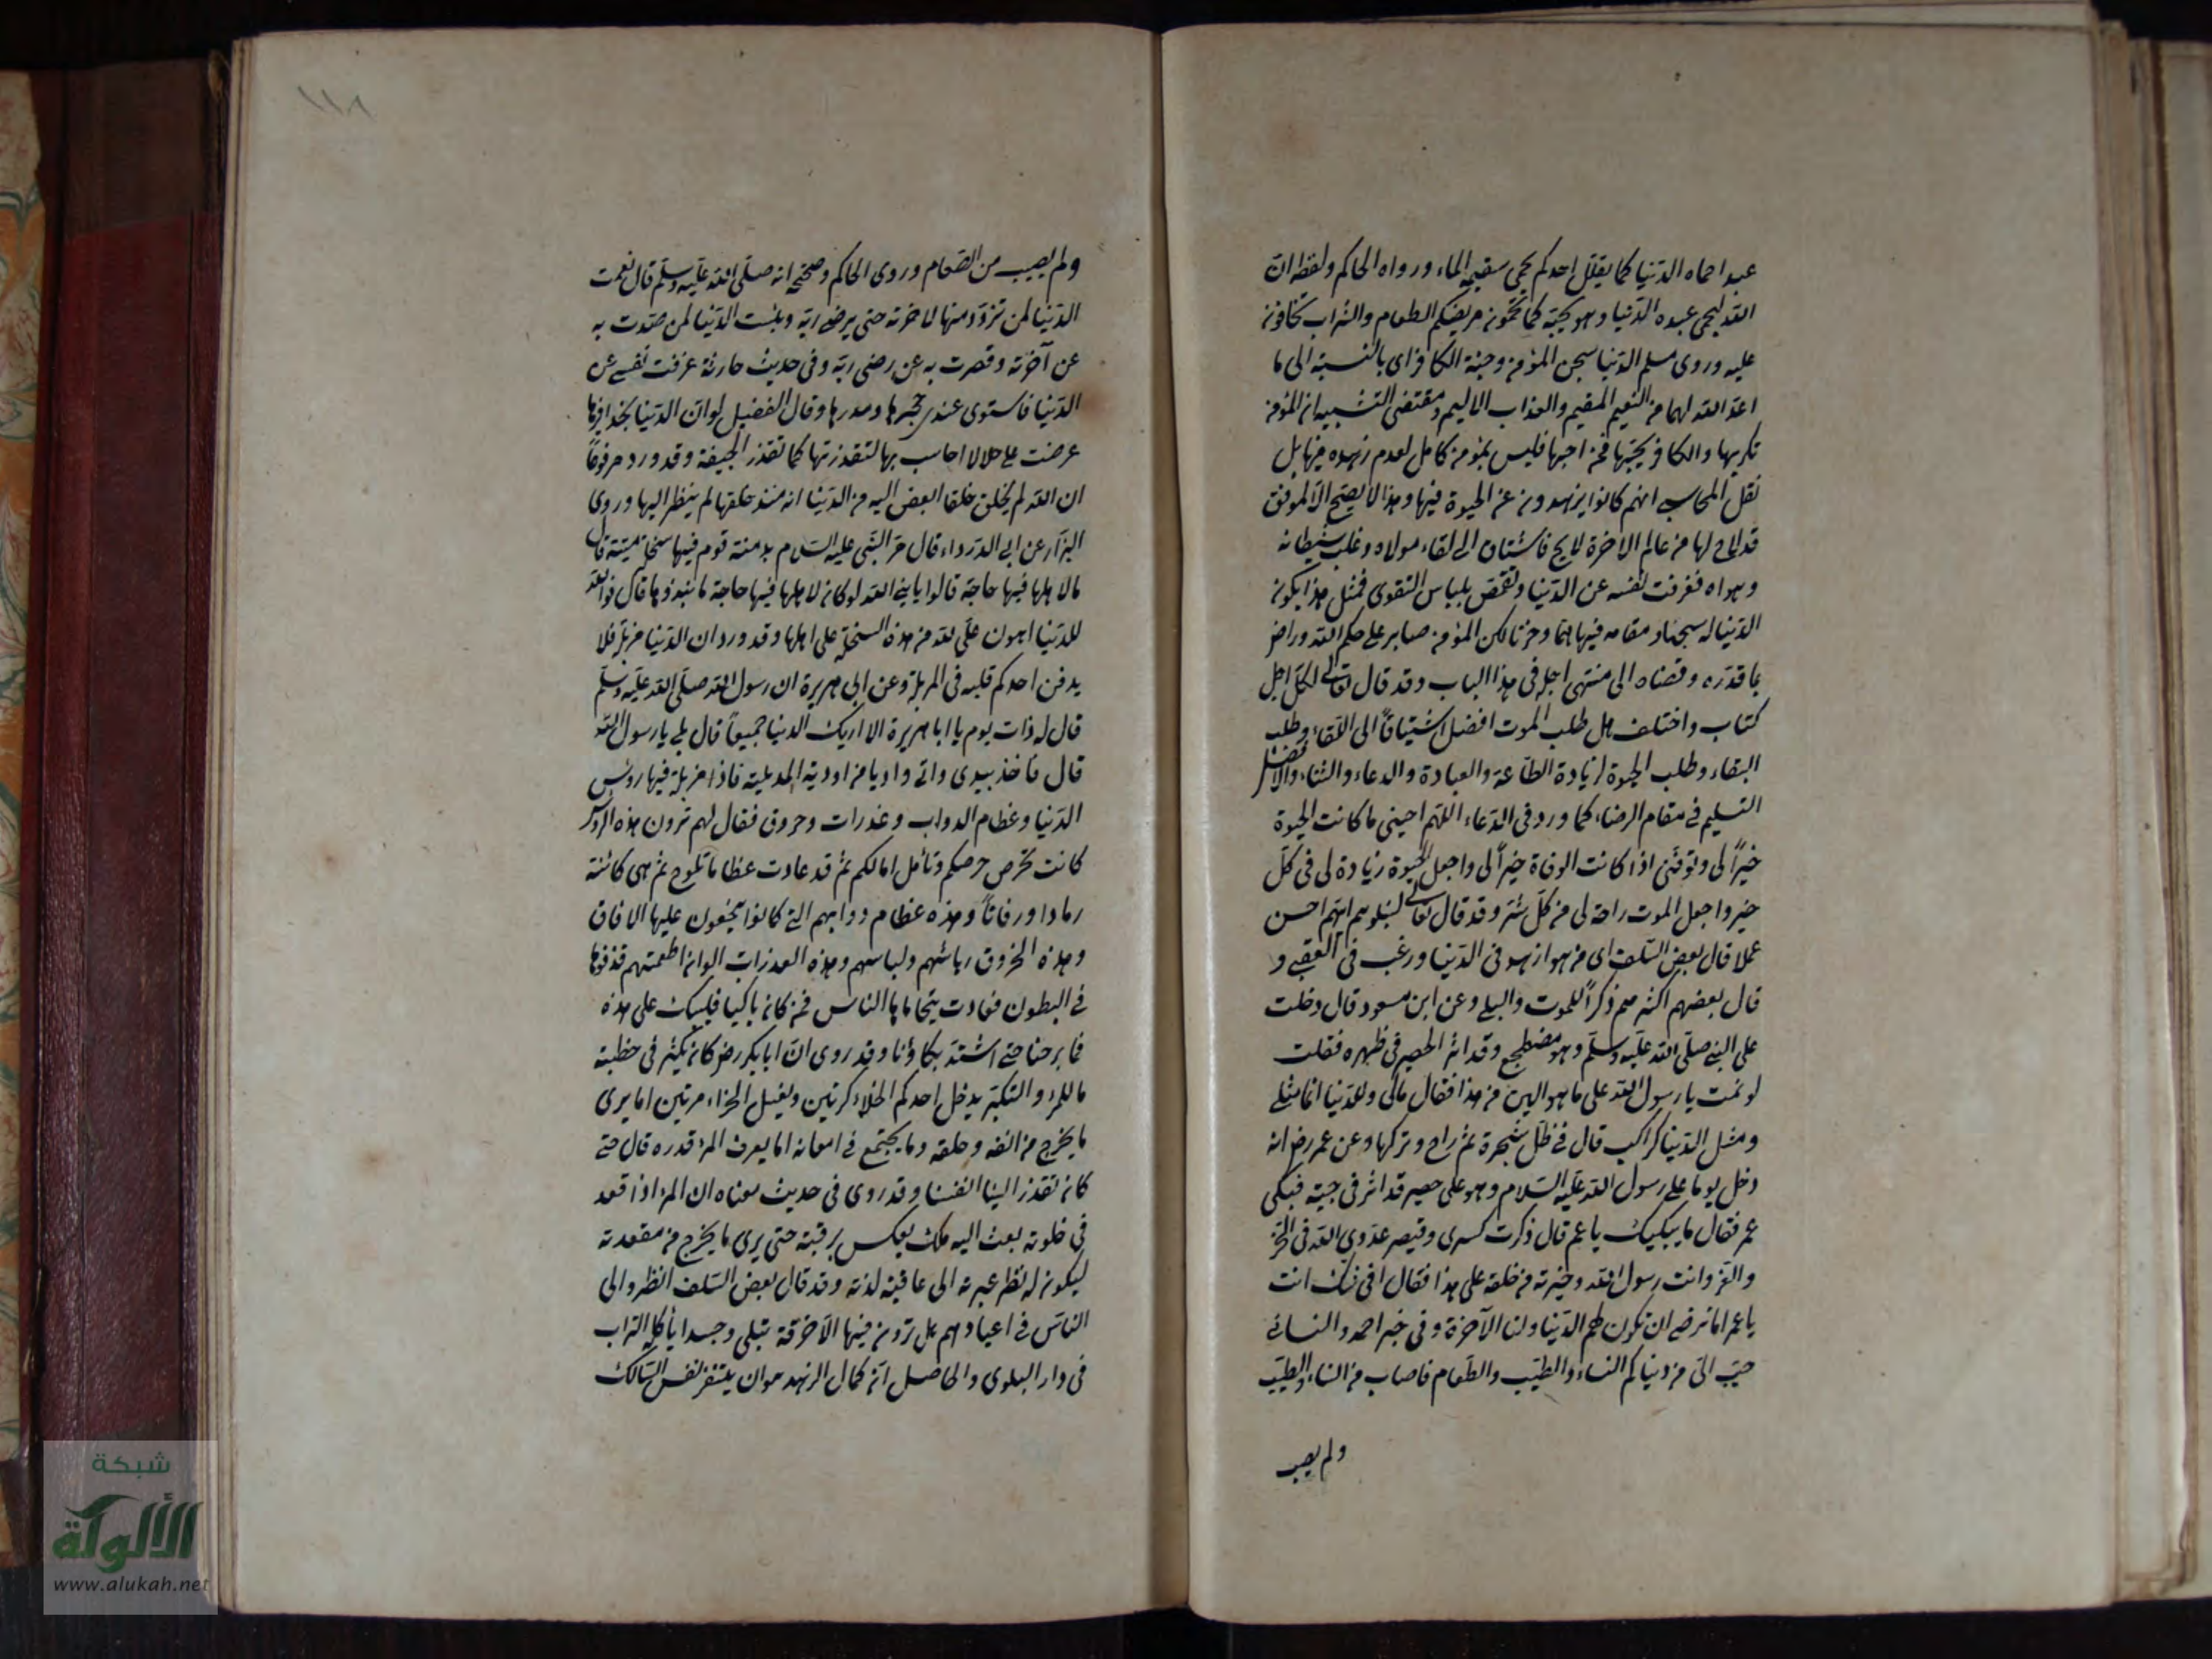 عبدا حماه الدنيا كما يظل احدكم يحمى سقيمه الماء ورواه الحاكم ولفظه ان
الله ليحمى عبده الدنيا وهو يحبه كما تحمون مريضكم الطعام والشراب تخافون
عليه وروى مسلم الدنيا سجن المؤمن وجنة الكافر اى بالنسبة الى ما
اعد الله لهما من النعيم المقيم والعذاب الاليم ومقتضى التشبيه ان المؤمن
تكريها والكافر يحبها فمن احبها فليس بمؤمن كامل لعدم زهده فيها بل
نقل المحاسبى انهم كانوا يزهدون عن الحيوة فيها وهذا لا يصح الا لموفق
قد لاح لها من عالم الاخرة لايح فاشتاق الى لقاء مولاه وغلب شيطانه
وهواه فعزفت نفسه عن الدنيا وتقمص بلباس التقوى فمثل هذا يكون
الدنيا له سجنا ومقامه فيها هما وحزنا لكن المؤمن صابر على حكم الله وراض
بما قدره وقضاه الى منتهى اجله فى هذا الباب وقد قال تعالى لكل اجل
كتاب واختلف هل طلب الموت افضل اشتياقا الى اللقاء وطلب
البقاء وطلب الحيوة لزيادة الطاعة والعبادة والدعاء والثناء والافضل
التسليم فى مقام الرضاء كما ورد فى الدعاء اللهم احينى ما كانت الحيوة
خيرا لى وتوفنى اذا كانت الوفاة خيرا لى واجعل الحيوة زيادة لى فى كل
خير واجعل الموت راحة لى من كل شر وقد قال تعالى لنبلوهم ايهم احسن
عملا قال بعض السلف اى من هو ازهد فى الدنيا وارغب فى العقبى و
قال بعضهم اكثرهم ذكرا للموت والبلى وعن ابن مسعود قال دخلت
على النبى صلى الله عليه وسلم وهو مضطجع وقد اثر الحصير فى ظهره فقلت
لو نمت يا رسول الله على ما هو الين من هذا فقال مالى وللدنيا انما مثلى
ومثل الدنيا كراكب قال فى ظل شجرة ثم راح وتركها وعن عمر رض انه
دخل يوما على رسول الله عليه السلام وهو على حصير قد اثر فى جنبه فبكى
عمر فقال ما يبكيك يا عمر قال ذكرت كسرى وقيصر عدوى الله فى الخز
والقز وانت رسول الله وخيرته من خلقه على هذا فقال افى شك انت
يا عمر اما ترضى ان تكون لهم الدنيا ولنا الآخرة وفى خبر احمد والنسائى
حبب الى من دنياكم النساء والطيب والطعام فاصاب من النساء والطيب
ولم يصب
١١٨
ولم يصب من الطعام وروى الحاكم وصححه انه صلى الله عليه وسلم قال نعمت
الدنيا لمن تزود منها لاخرته حتى يرضى ربه وبئست الدنيا لمن صدت به
عن آخرته وقصرت به عن رضى ربه وفى حديث حارثة عزفت نفسى عن
الدنيا فاستوى عندى حجرها ومدرها وقال الفضيل لو ان الدنيا بحذافيرها
عرضت على حلالا لا احاسب بها لتقذرتها كما تقذر الجيفة وقد ورد مرفوعا
ان الله لم يخلق خلقا ابغض اليه من الدنيا انه منذ خلقها لم ينظر اليها وروى
البزار عن ابى الدرداء قال مر النبى عليه السلام بدمنة قوم فيها سخلة ميتة قال
ما لاهلها فيها حاجة قالوا يا نبى الله لو كان لاهلها فيها حاجة ما نبذوها قال فوالله
للدنيا اهون على الله من هذه السخلة على اهلها وقد ورد ان الدنيا مزبلة فلا
يدفن احدكم قلبه فى المزبلة وعن ابى هريرة ان رسول الله صلى الله عليه وسلم
قال له ذات يوم يا ابا هريرة الا اريك الدنيا جميعا قال بلى يا رسول الله
قال فاخذ بيدى واتى واديا من اودية المدينة فاذا مزبلة فيها رؤس
الدنيا وعظام الدواب وعذرات وخروق فقال لهم ترون هذه الرؤس
كانت تحرص حرصكم وتامل امالكم ثم قد عادت عظاما تلوح ثم هى كائنة
رمادا ورفاتا وهذه عظام دوابهم التى كانوا ينتجعون عليها الافاق
وهذه الخروق رياشهم ولباسهم وهذه العذرات الوان اطعمتهم قذفوها
فى البطون فعادت يتحاماها الناس فمن كان باكيا فليبك على هذه
فما برحنا حتى اشتد بكاؤنا وقد روى ان ابا بكر رض كان يكثر فى خطبته
ما للمرء والتكبر يدخل احدكم الخلاء كرتين ويغسل الخراء مرتين اما يرى
ما يخرج من انفه وحلقه وما يجتمع فى امعائه اما يعرف المرء قدره قال حتى
كان تقذر الينا انفسنا وقد روى فى حديث معناه ان المرء اذا قعد
فى خلوته بعث اليه ملك يعكس برقبته حتى يرى ما يخرج من مقعدته
ليكون له نظر عبرة الى عاقبة لذته وقد قال بعض السلف انظروا الى
الناس فى اعيادهم هل ترون فيها الا خرقة تبلى وجسدا يأكله التراب
فى دار البلوى والحاصل ان كمال الزهد هو ان يتنفر نفس السالك
شبكة
الألوكة
www.alukah.net